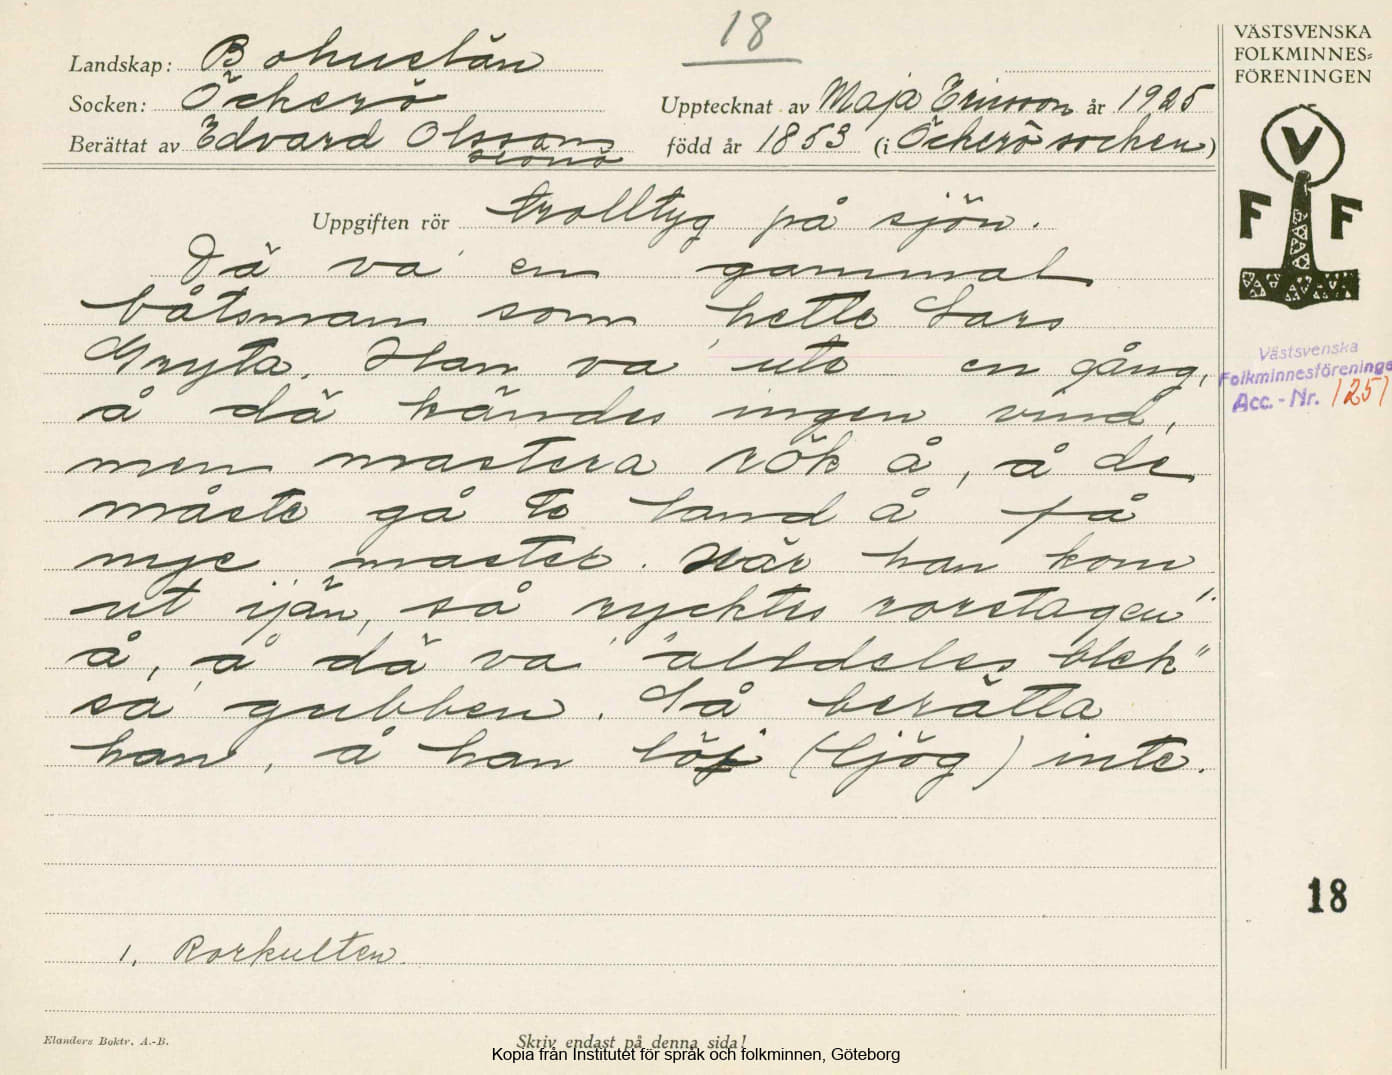 18
VÄSTSVENSKA
FOLKMINNES=
FÖRENINGEN
Landskap: Bohuslän
Socken: Öckerö
Upptecknat av Maja Ericsson år 1925
Berättat av Edvard Olsson
född år 1853 (i Öckerö socken)
V
F F
Uppgiften rör trolltyg på sjön.
Dä va en gammal
båtsman som hette Lars
Gryta. Han va ute en gång,
å dä kändes ingen vind,
men mastera rök å, å de
måste gå te land å få
nye master. När han kom
ut ijän, så rycktes rorstagen 1.
å, å dä va "alldeles blek"
sa gubben. Så berätta
han, å han löj (ljög) inte.
Västsvenska
Folkminnesföreninge
Acc.-Nr. 1251
18
1. Rorkulten.
Elanders Boktr. A.-B.
Skriv endast på denna sida!
Kopia från Institutet för språk och folkminnen, Göteborg